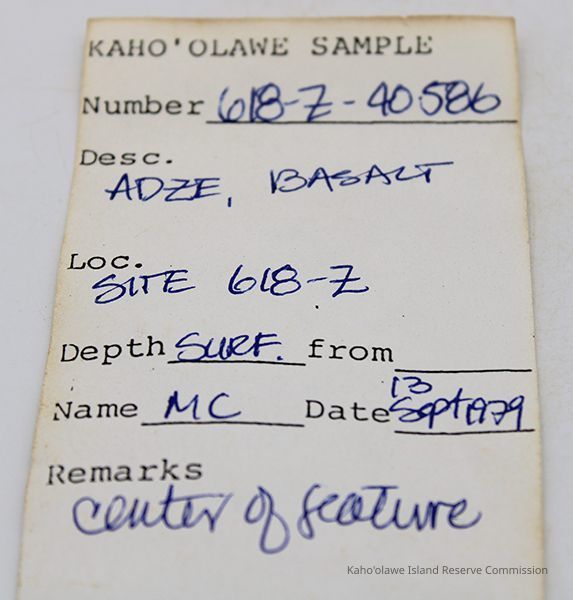 KAHO'OLAWE SAMPLE
Number 618-Z-40586
Desc.
ADZE, BASALT
Loc.
SITE 618-Z
Depth SURF. from
Name MC Date 13 Sept 1979
Remarks
center of feature
Kaho'olawe Island Reserve Commission